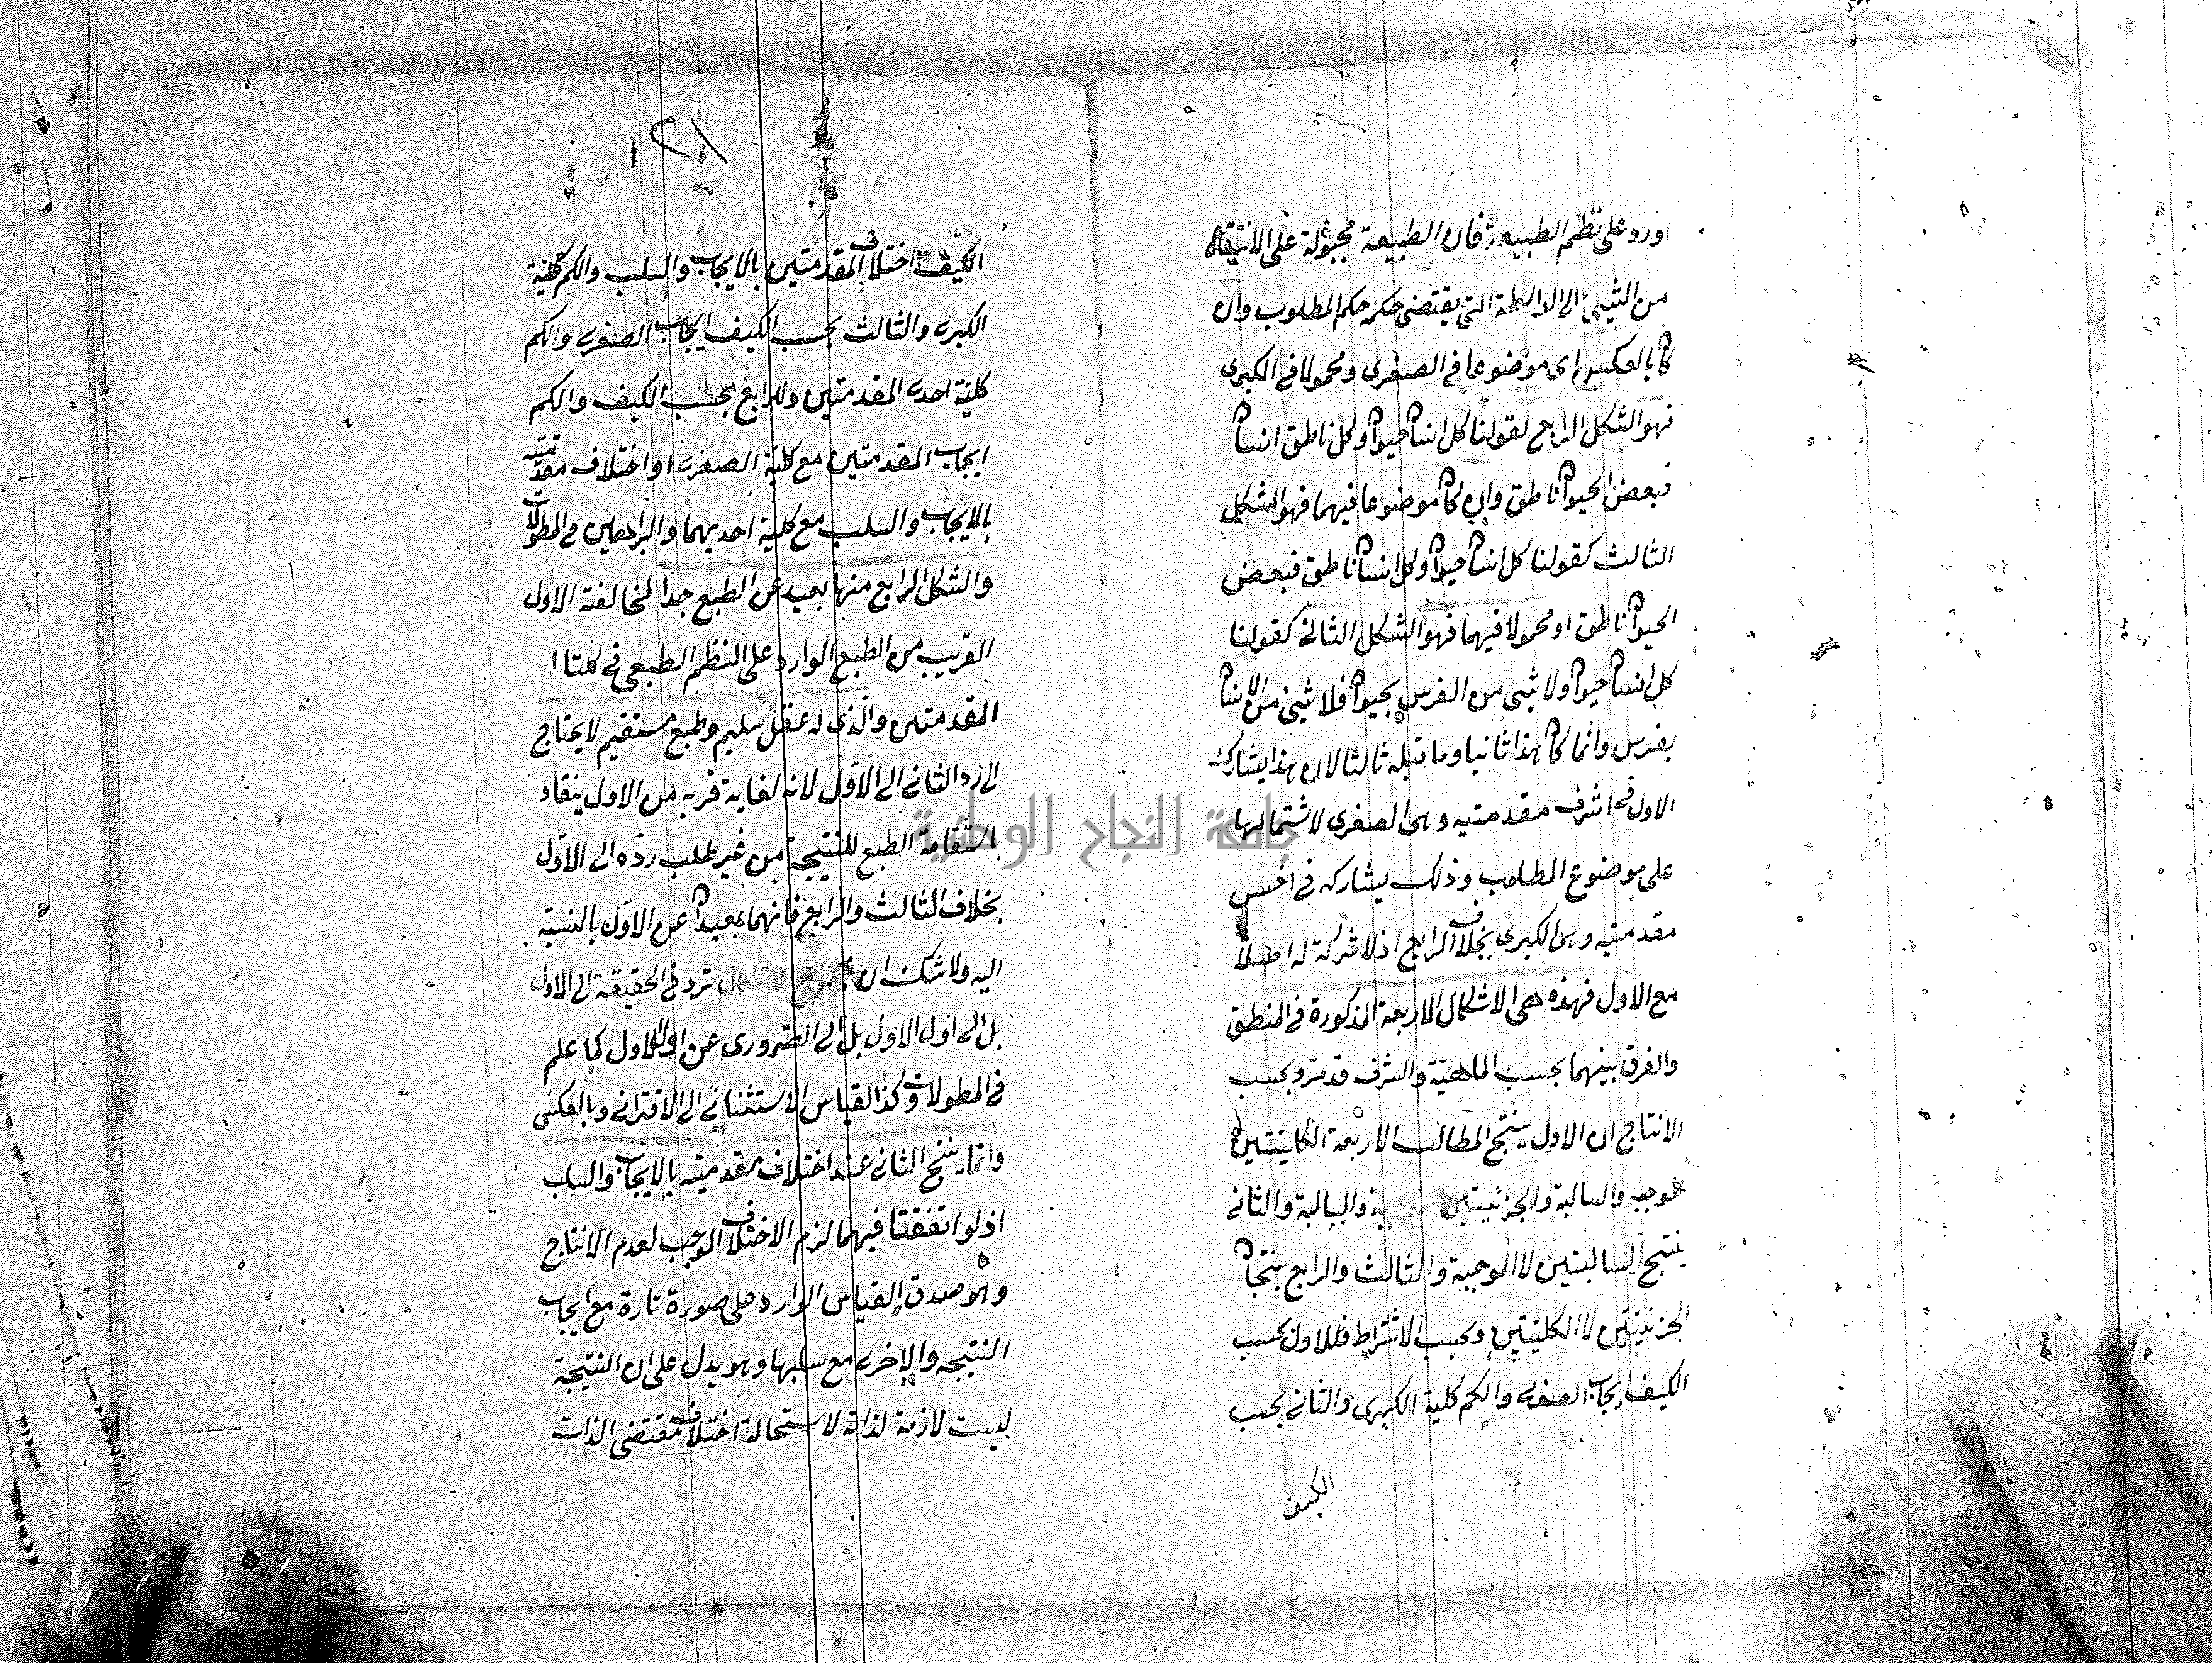 اورد على نظم الطبيعة فان الطبيعة مجبولة على الانتقال
من الشيئ الى الواسطة التي يقتضى حكمه حكم المطلوب وان
كا بالعكس اى موضوعا في الصغرى ومحمولا في الكبرى
فهو الشكل الرابع لقولنا كل انسا حيوا وكل ناطق انسا
فبعض الحيوا ناطق وان كا موضوعا فيهما فهو الشكل
الثالث كقولنا كل انسا حيوا وكل انسا ناطق فبعض
الحيوا ناطق او محمولا فيهما فهو الشكل الثانى كقولنا
كل انسا حيوا ولا شيئ من الفرس بحيوا فلا شيئ من الانسا
بفرس وانما كا هذا ثانيا وما قبله ثالثا لان هذا يشارك
الاول في اشرف مقدمتيه وهى الصغرى لاشتمالها
على موضوع المطلوب وذلك يشاركه في اخس
مقدمتيه وهى الكبرى بخلاف الرابع اذ لا شركة له اصلا
مع الاول فهذه هى الاشكال الاربعة المذكورة في المنطق
والفرق بينهما بحسب الماهية والشرف قد مر وبحسب
الانتاج ان الاول ينتج المطالب الاربعة الكليتين
موجبه والسالبة والجزئيتين والسالبة والثانى
ينتج السالبتين لا الموجبة والثالث والرابع ينتجا
الجزئيتين لا الكليتين وبحسب الاشتراط فللاول بحسب
الكيف ايجاب الصغرى والكم كلية الكبرى والثانى بحسب
الكيف
١٢
الكيف اختلاف المقدمتين بالايجاب والسلب والكم كلية
الكبرى والثالث بحسب الكيف ايجاب الصغرى والكم
كلية احدى المقدمتين وللرابع بحسب الكيف والكم
ايجاب المقدمتين مع كلية الصغرى او اختلاف مقدمتيه
بالايجاب والسلب مع كلية احديهما والبراهين في المطولات
والشكل الرابع منها بعيد عن الطبع جدا لمخالفته الاول
القريب من الطبع الوارد على النظم الطبعى في كلتا
المقدمتين والذى له عقل سليم وطبع مستقيم لا يحتاج
الى رد الثانى الى الاول لانه لغاية قربه من الاول ينقاد
استقامة الطبع للنتيجة من غير طلب رده الى الاول
بخلاف الثالث والرابع فانهما بعيدا عن الاول بالنسبة
اليه ولا شك ان الاشكال ترد في الحقيقة الى الاول
بل الى اول الاول بل الى الضرورى عن اول الاول كما علم
في المطولات وكذا القياس الاستثنائى الى الاقترانى وبالعكس
وانما ينتج الثانى عند اختلاف مقدمتيه بالايجاب والسلب
اذ لو اتفقتا فيهما لزم الاختلاف الموجب لعدم الانتاج
وهو صدق القياس الوارد على صورة تارة مع ايجاب
النتيجه والاخرى مع سلبها وهو يدل على ان النتيجة
ليست لازمة لذاته لاستحالة اختلاف مقتضى الذات
جامعة النجاح الوطنية